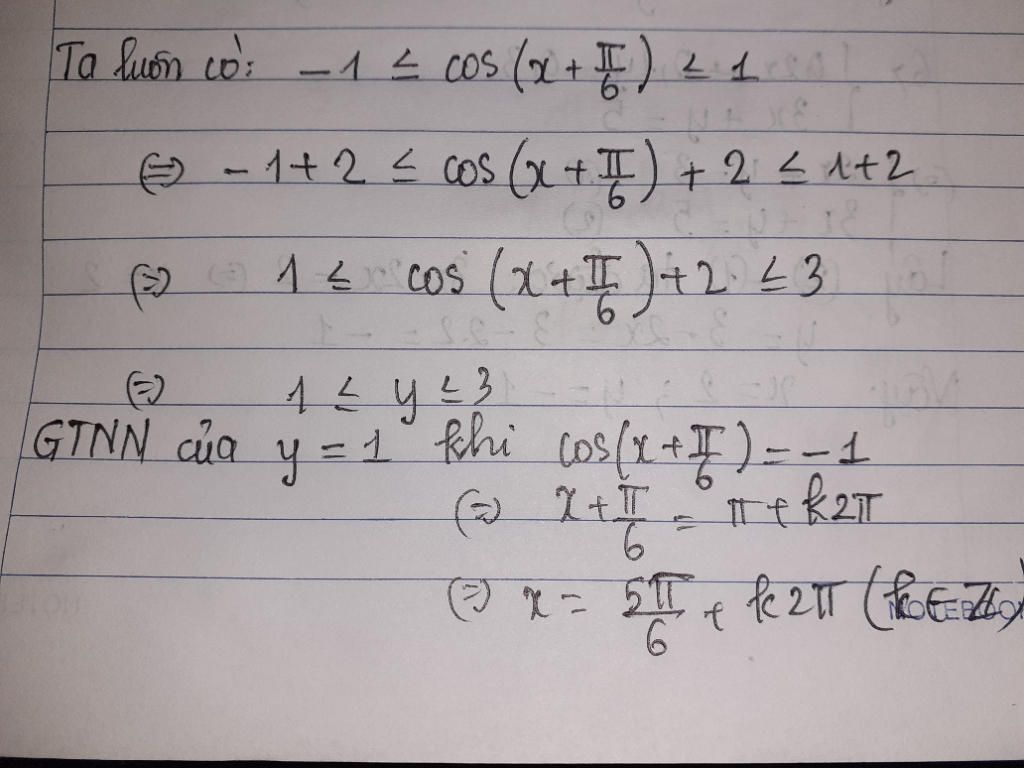 Ta luôn có: -1 ≤ cos(x + π/6) ≤ 1
⇔ -1+2 ≤ cos(x + π/6) + 2 ≤ 1+2
⇔ 1 ≤ cos (x + π/6) + 2 ≤ 3
⇔ 1 ≤ y ≤ 3
GTNN của y = 1 khi cos(x + π/6) = -1
⇔ x + π/6 = π + k2π
⇔ x = 5π/6 + k2π (k ∈ Z)